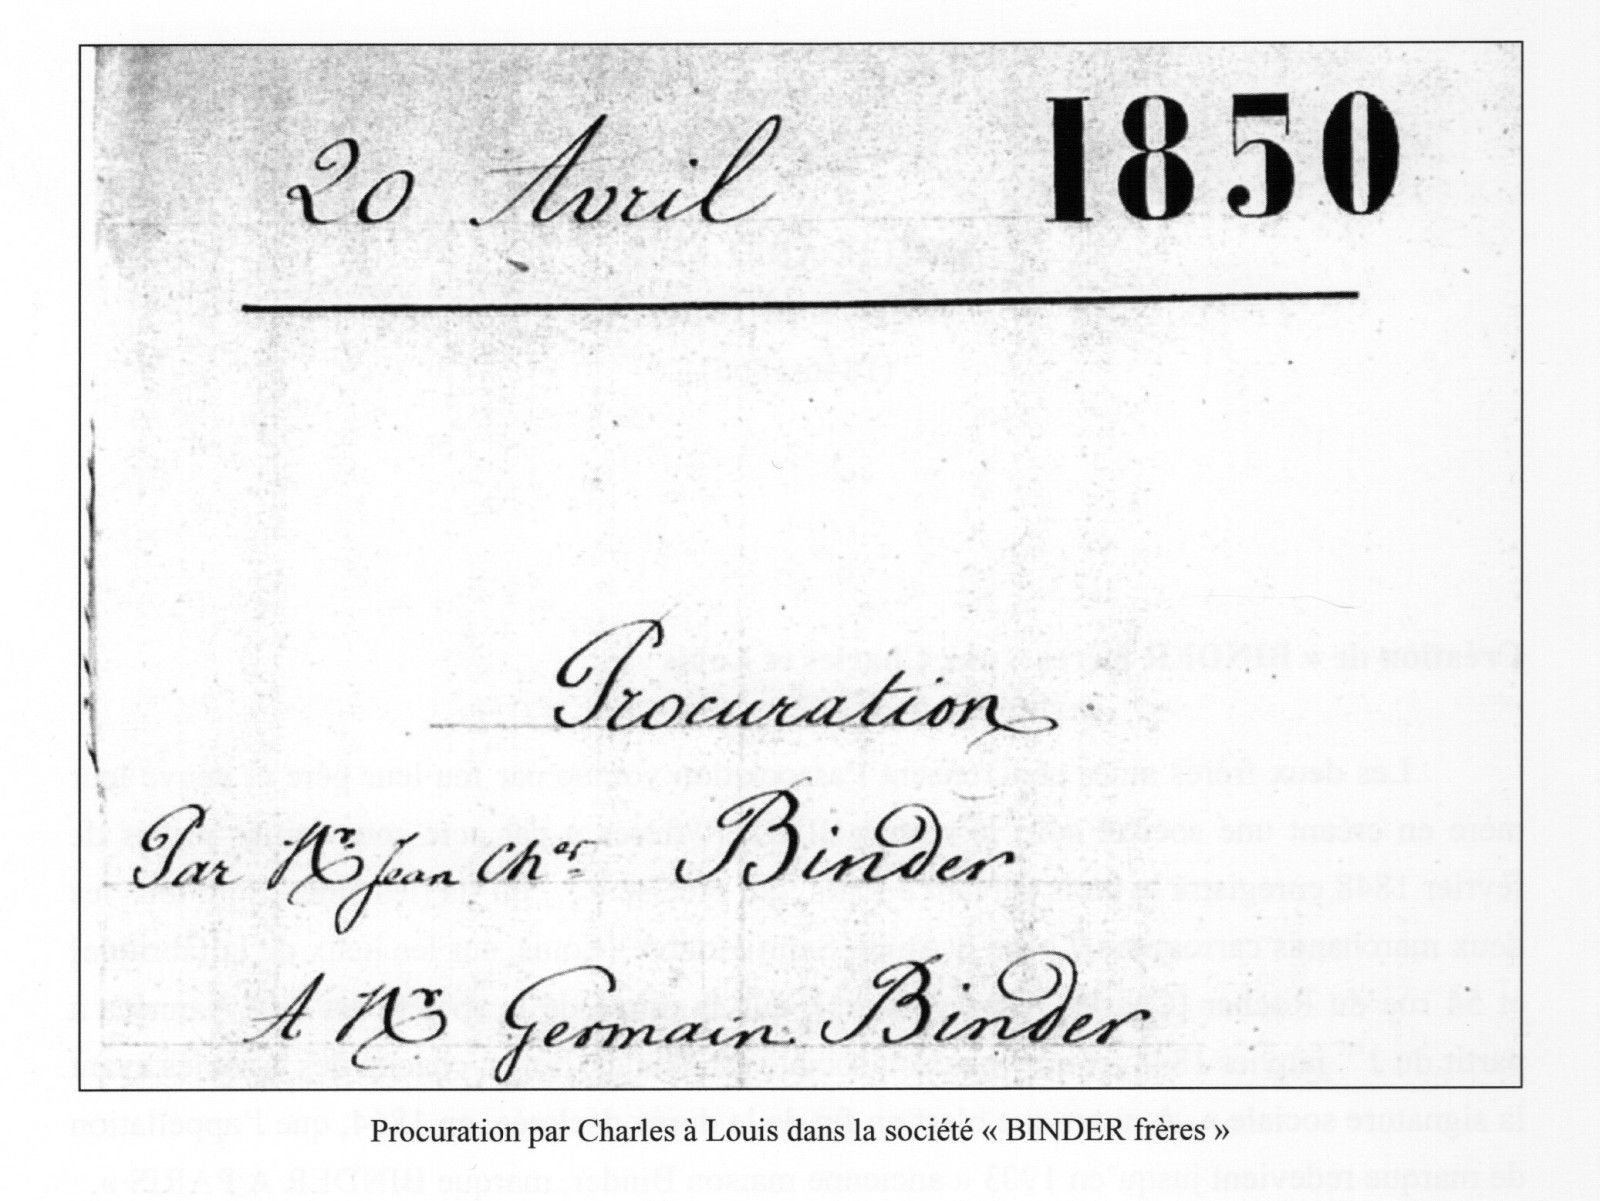 20 Avril 1850
Procuration
Par Mr Jean Ches Binder
A Mr Germain Binder
Procuration par Charles à Louis dans la société « BINDER frères »